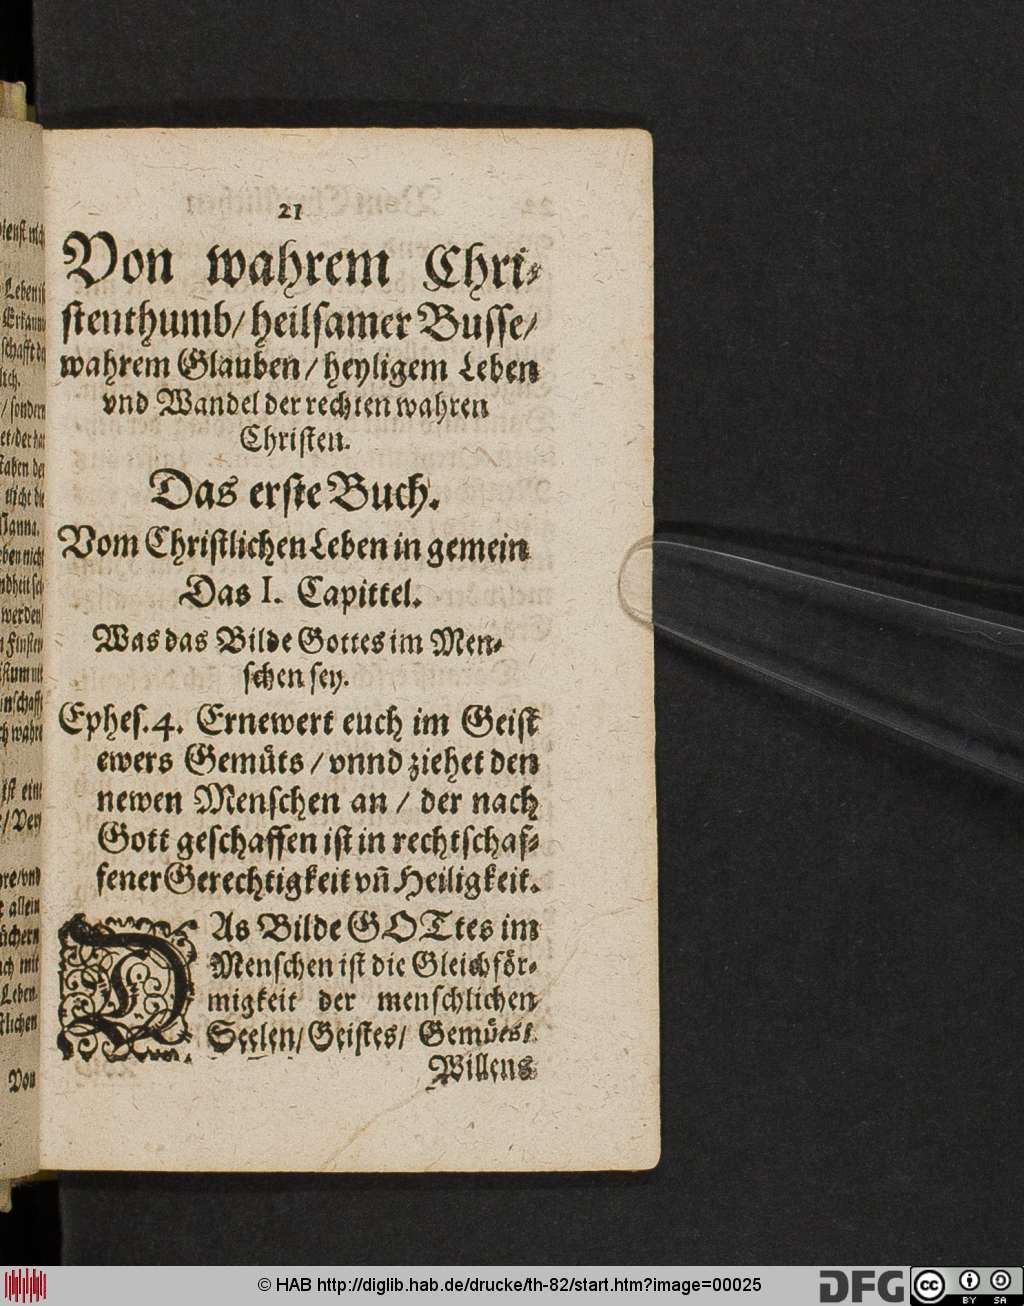 21
Von wahrem Chri-
stenthumb/ heilsamer Busse/
wahrem Glauben/ heyligem Leben
vnd Wandel der rechten wahren
Christen.
Das erste Buch.
Vom Christlichen Leben in gemein
Das I. Capittel.
Was das Bilde Gottes im Men-
schen sey.
Ephes. 4. Ernewert euch im Geist
ewers Gemüts/ vnnd ziehet den
newen Menschen an/ der nach
Gott geschaffen ist in rechtschaf-
fener Gerechtigkeit vñ Heiligkeit.
DAs Bilde GOTtes im
Menschen ist die Gleichför-
migkeit der menschlichen
Seelen/ Geistes/ Gemütes/
Willens
© HAB http://diglib.hab.de/drucke/th-82/start.htm?image=00025
DFG
cc
BY SA